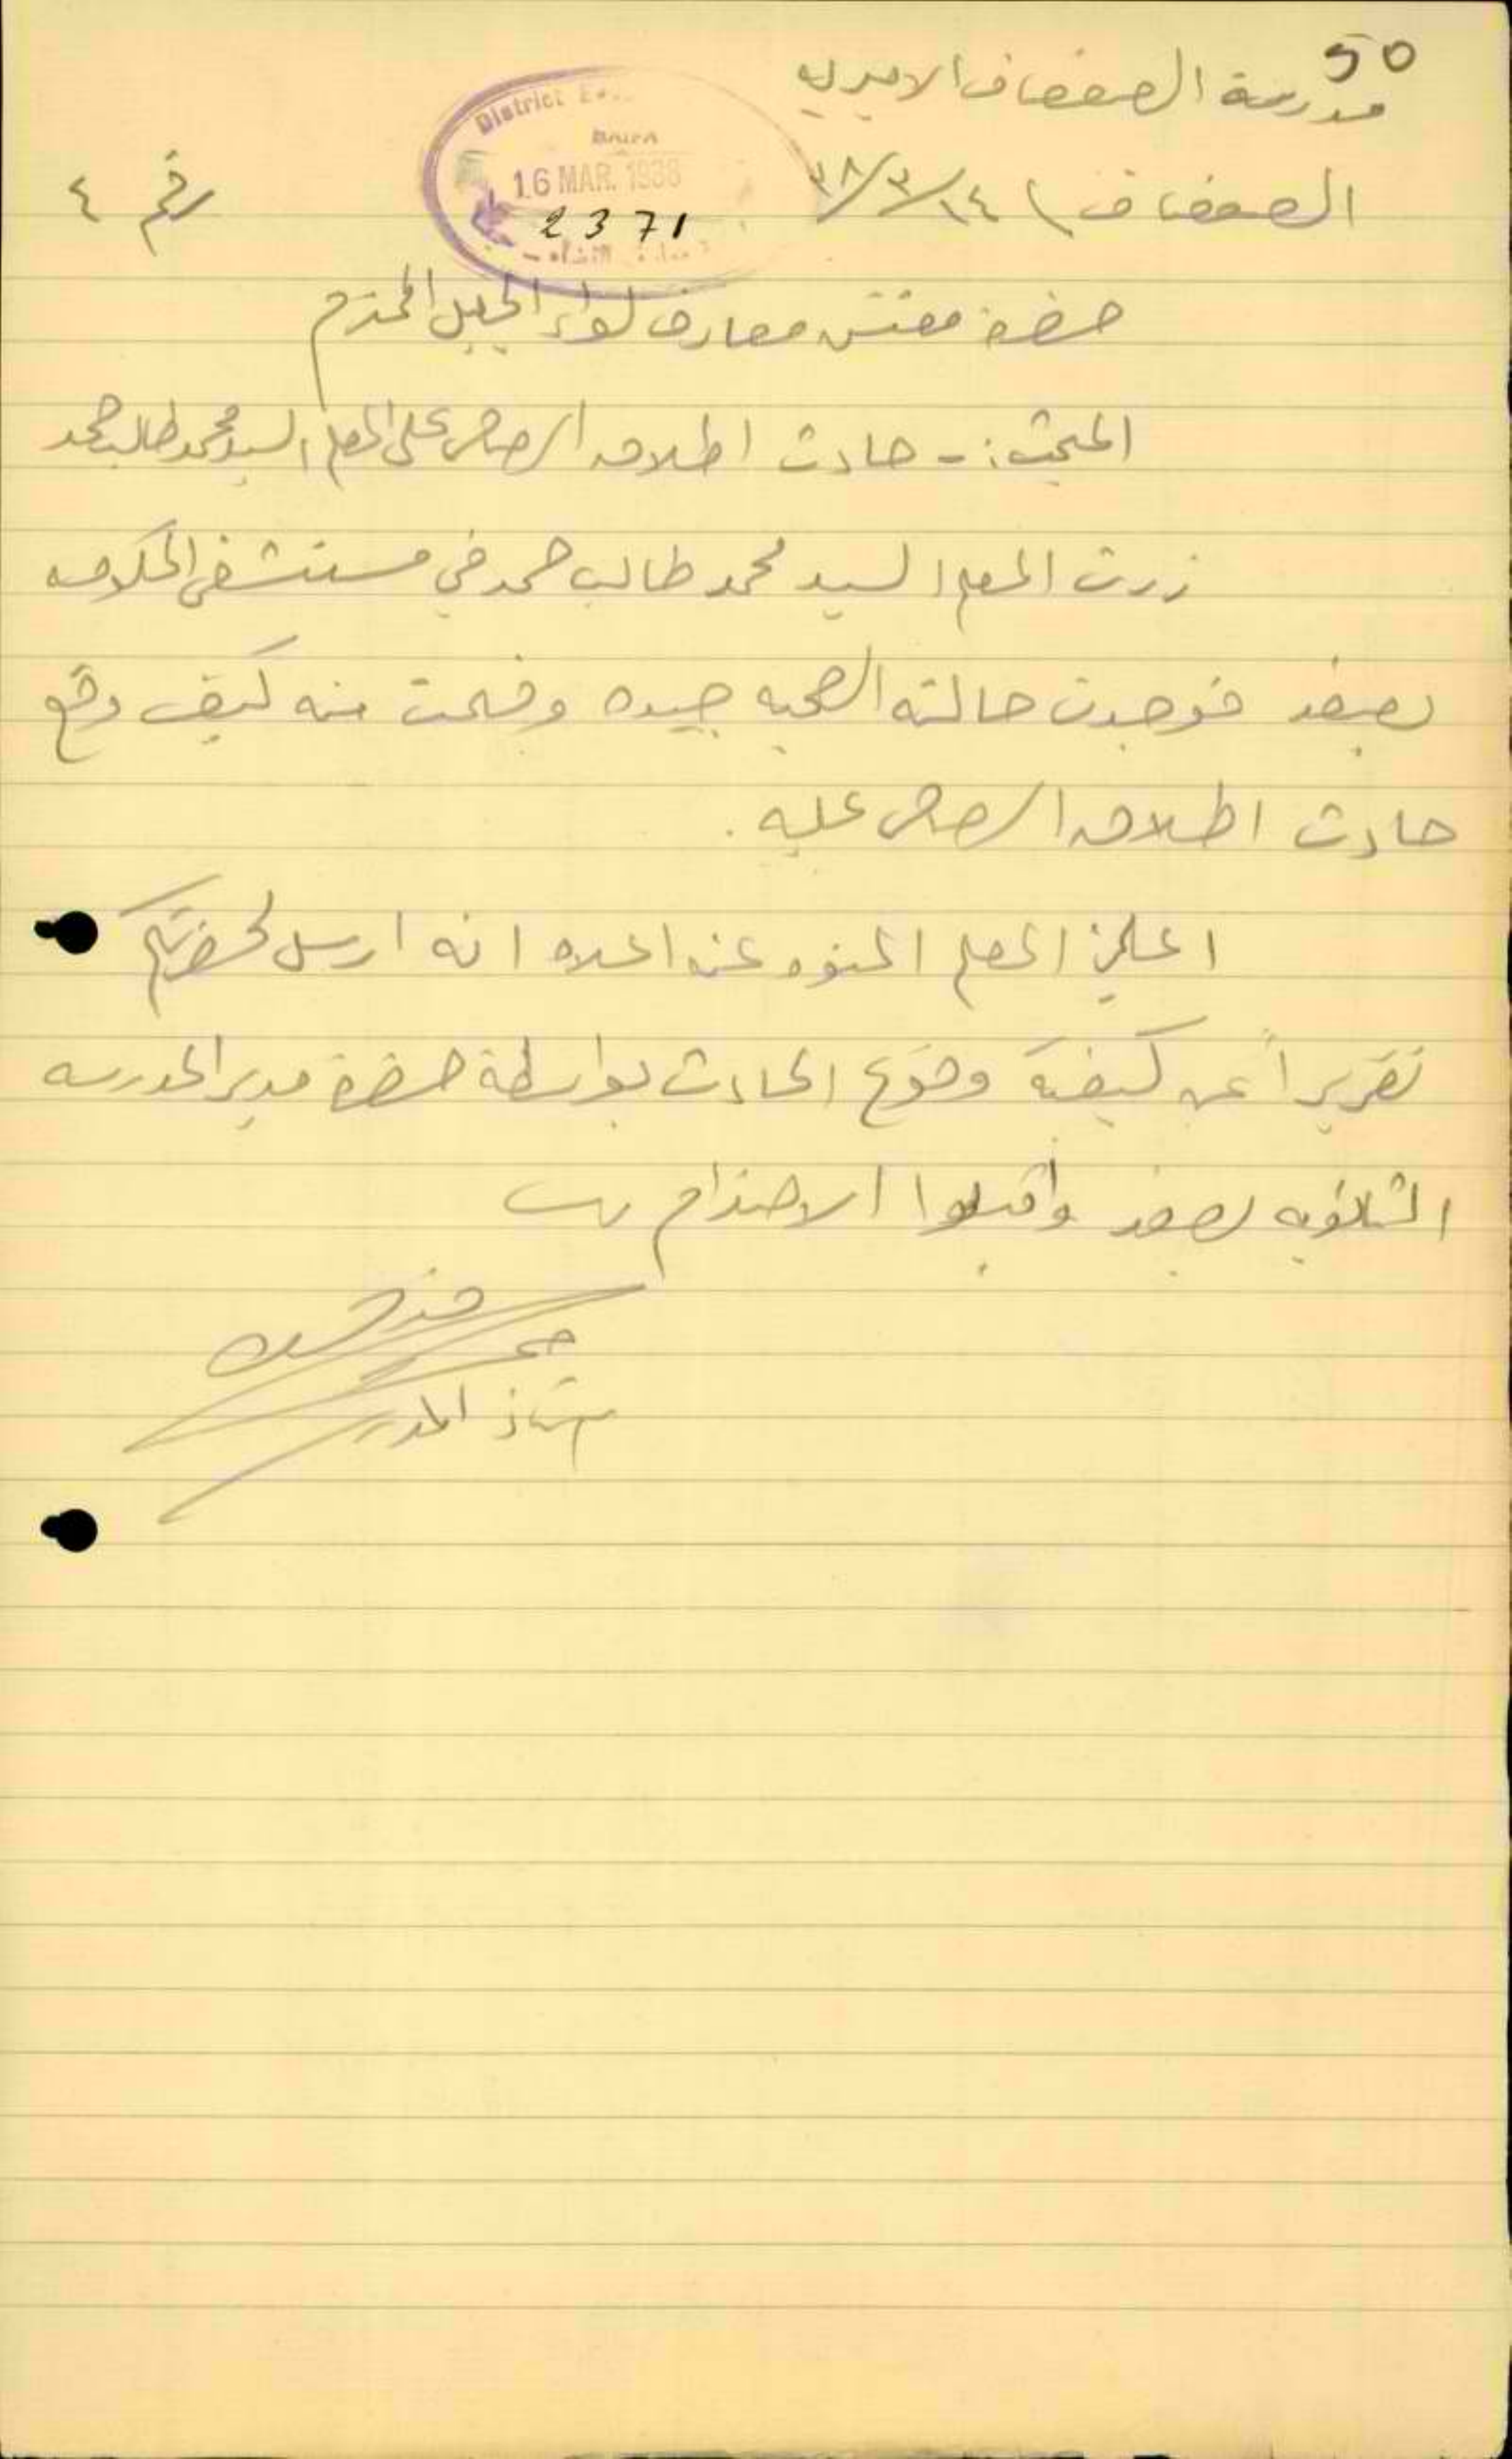 50
مدرسة الصفصاف الاميريه
الصفصاف) ١٤/٣/٣٨
رقم ٤
District
16 MAR. 1938
2371
حضرة مفتش معارف لواء الجليل المحترم
المبحث :- حادث اطلاق الرصاص على المعلم السيد محمد طالب حمد
زرت المعلم السيد محمد طالب حمد في مستشفى الحكومه
بصفد فوجدت حالته الصحيه جيده وفهمت منه كيف وقع
حادث اطلاق الرصاص عليه .
اعلمني المعلم المنوه عنه اعلاه انه ارسل لحضرتكم
تقريراً عن كيفية وقوع الحادث بواسطة حضرة مدير المدرسه
الثانويه بصفد واقبلوا الاحترام